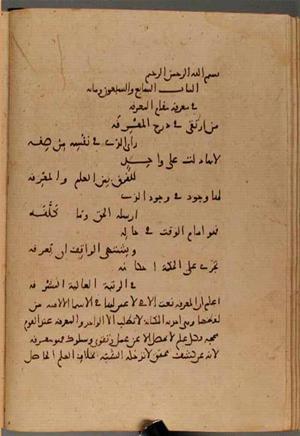 بسم الله الرحمن الرحيم
الباب السابع والسبعون ومائه
في معرفة مقام المعرفه
من ارتقى في درج المعرفه
راى الذي في نفسه من صفه
لانها دلت على واحد
للفرق بين العلم والمعرفه
لها وجود في وجود الذي
ارسله الحق وما كلفه
فهو امام الوقت في حاله
ويشتهى الواقف ان يعرفه
تجرى على الحكمة احكامه
في الرتبة العالية المشرفه
اعلم ان المعرفه نعت الاهي لا عين لها في الاسما الالاهيه من
لفظها وهي احديه المكانة لا تطلب الا الواحد والمعرفه عند القوم
محجه وكل علم لا يحصل الا عن عمل وتقوى وسلوك فهو معرفه
لانه عن كشف محقق لا تدخله الشبه بخلاف العلم الحاصل